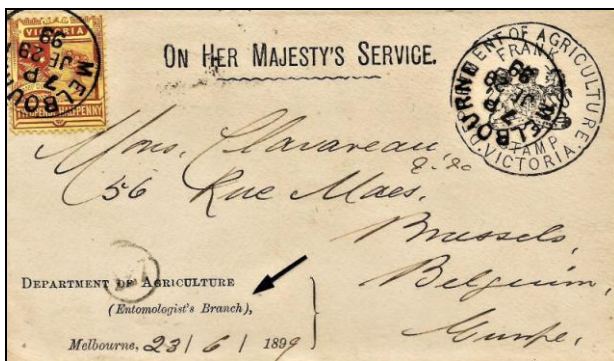 VICTORIA
TWOPENCE HALFPENNY
MELBOURNE
7 P
JE 29
99
ON HER MAJESTY'S SERVICE.
DEPARTMENT OF AGRICULTURE
FRANK
STAMP
VICTORIA.
MELBOURNE
7 P
JE
99
Mons. Clavareau
56 Rue Maes.
Brussels,
Belgium,
Europe.
DEPARTMENT OF AGRICULTURE
(Entomologist's Branch),
Melbourne, 23/6/1899